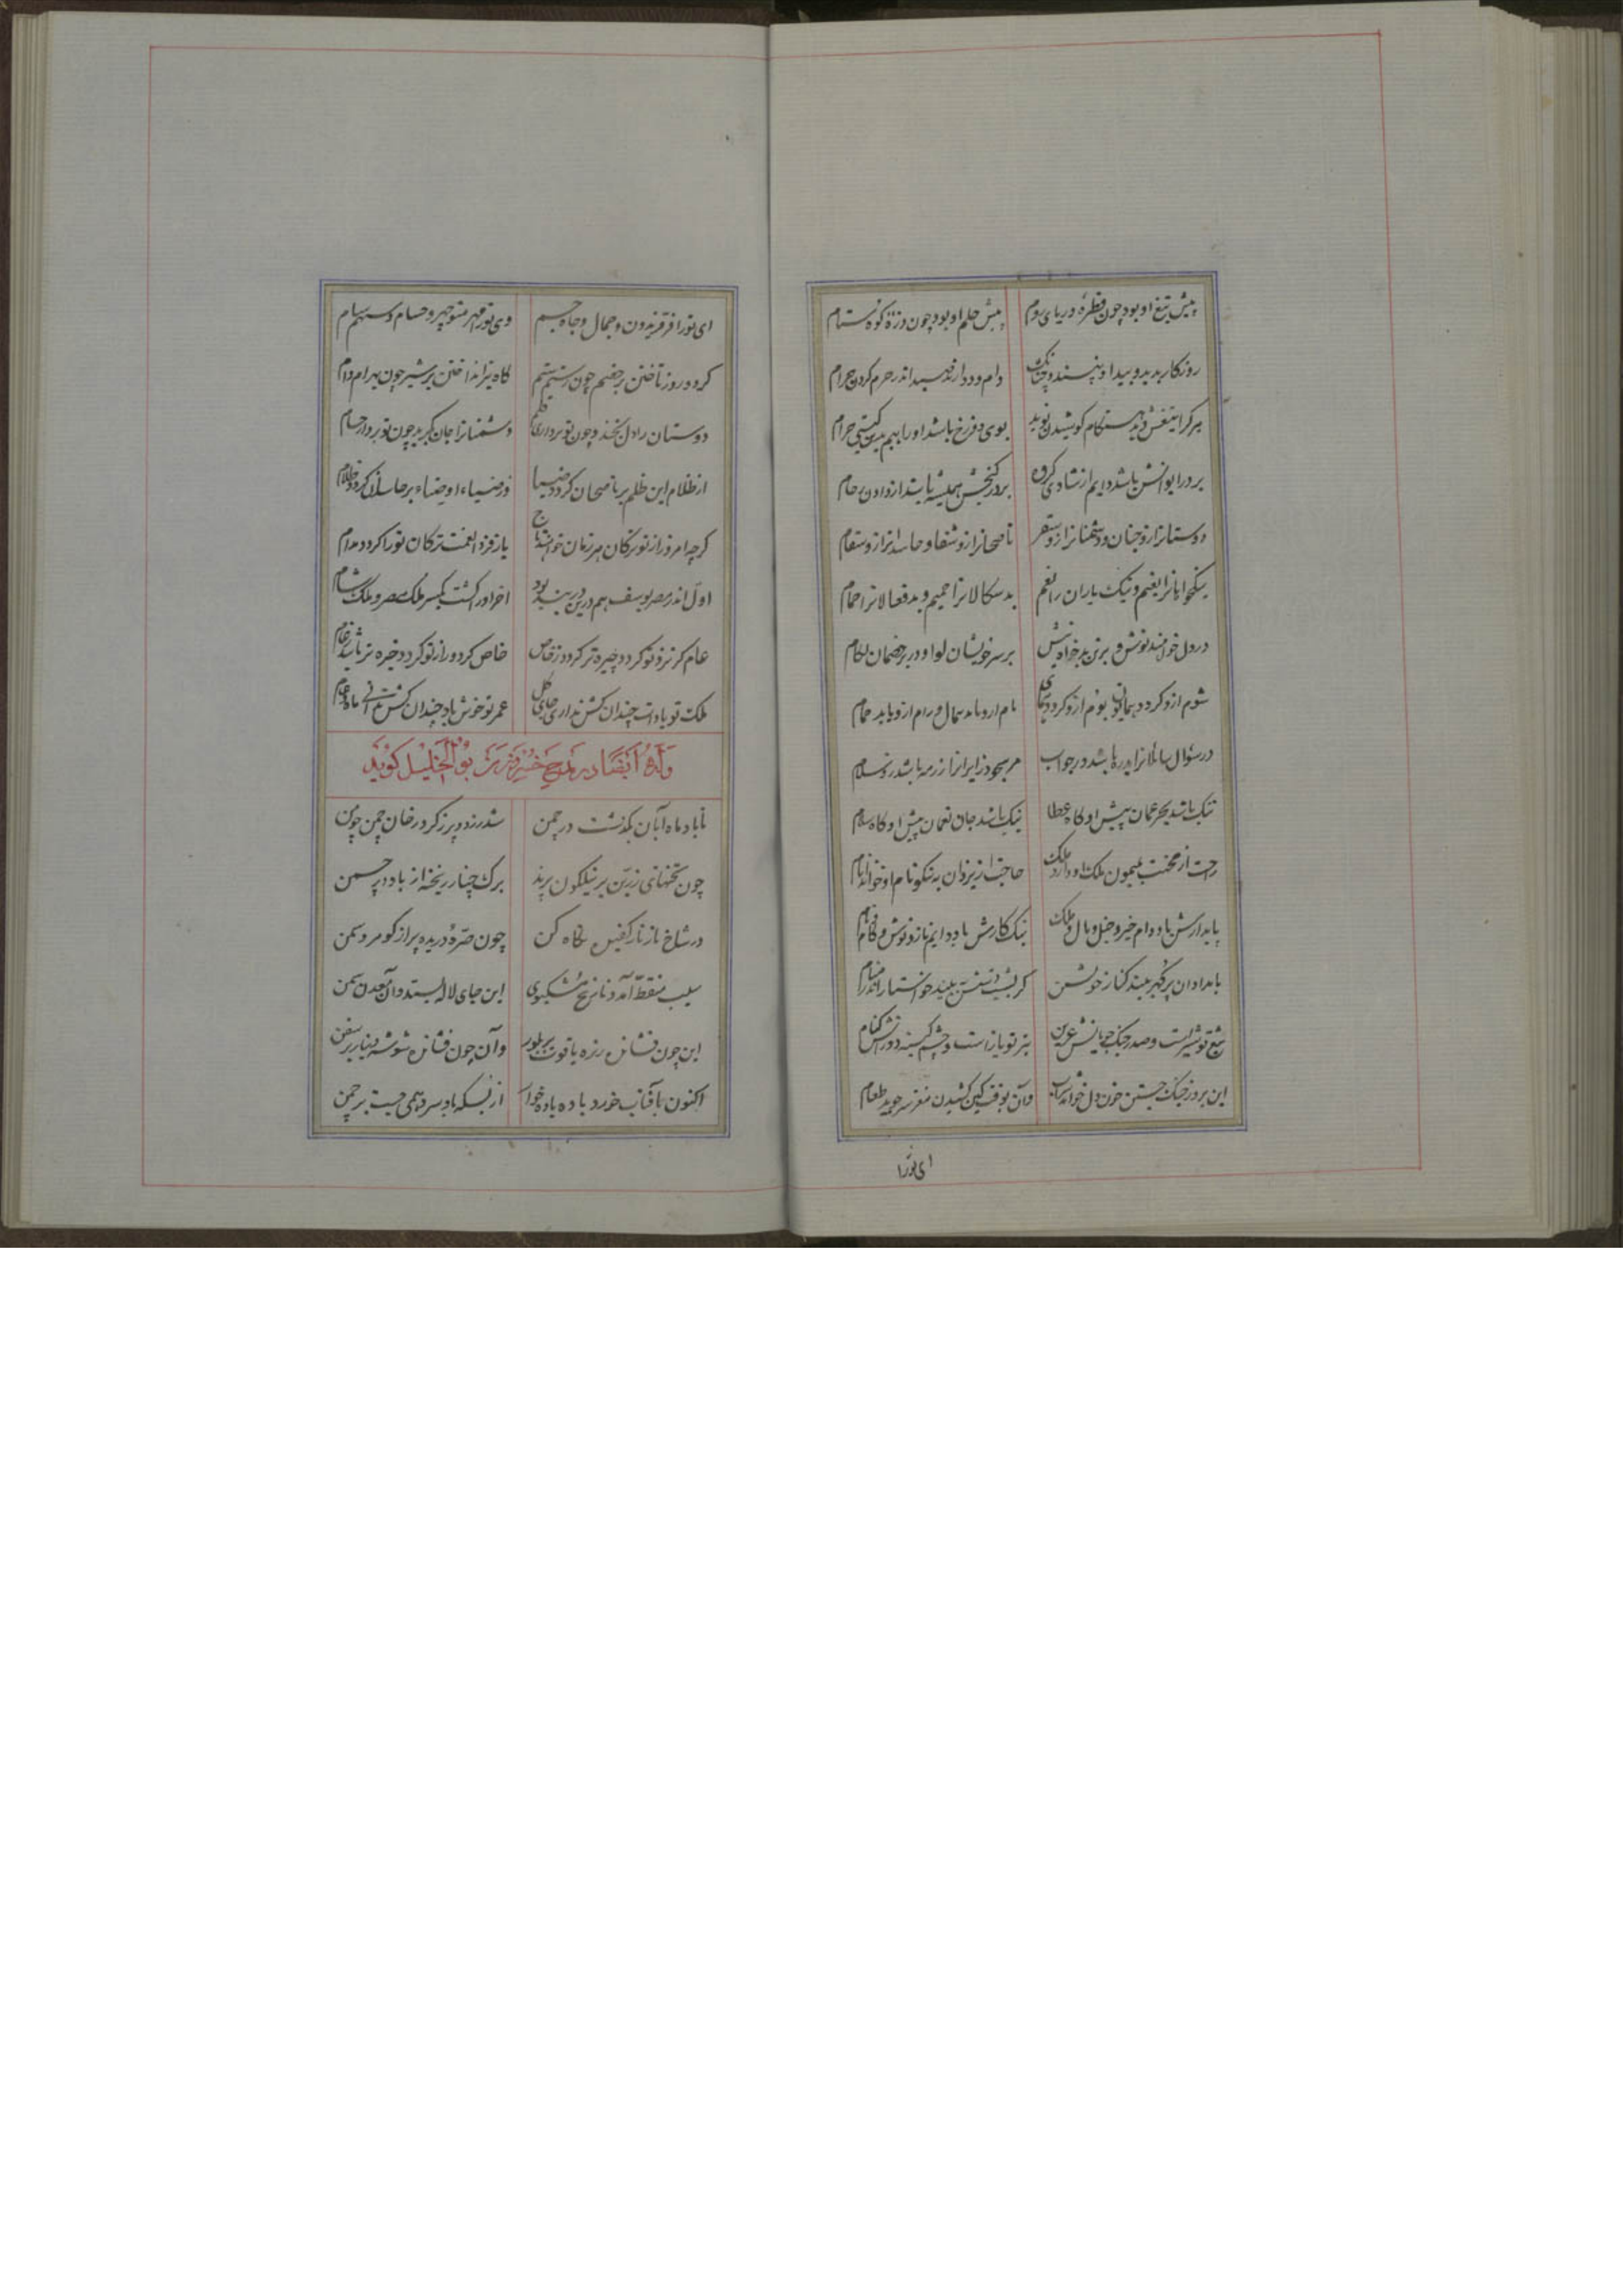 پیش تیغ او بود چون قطرهٔ دریای روم پیش حلم او بود چون ذرهٔ کوه ستام
روزکار بد بد و بیدا او نپسندد چنانک دام و دد دارند صید اندر حرم کردن حرام
هر کرا تیغش دهد هنکام کوشیدن نوید بوی دوزخ باشد او را بیم بدین کیتی خرام
بر در ایوانش باشد دایم از شادی کروه بر در کنجش همیشه باشد از دادن
دوستانرا زو جنان و دشمنانرا زو سقر ناصحانرا زو شفا و حاسدانرا زو سقام
نیکخواهانرا نعیم و نیک یارانرا نعم بدسکالانرا حمیم و بدفعالانرا حمام
در دل خوانند نوش و بر تن بدخواه نیش بر سر خویشان لوا و در بر خصمان لکام
شوم ازو کردد همایون بوم ازو کردد همای
در سؤال سائلانرا باشد در جواب مر سجود زایرانرا باشد در سلام
تنک باشد بحر عمان پیش او کاه عطا نیک باشد جان نعمان پیش او کاه سلام
راحت از محنت میمون ملک او دارد ملک حاجت از یزدان به نیکو نام او خواهد انام
پایدارش باد دام خیر و خیل و مال و ملک نیک کارش باد دایم ناز و نوش و کام
بامدادان پر کهر بیند کنار خویشتن کر بشب بیند خواستار اندر منام
تیغ تو شیرست و صدر جنک جویانش عرین تیر تو بازست و چشم کینه دورانش کنام
این بروز جنک جستن خون دل خواهد شراب وآن بوقت کین کشیدن مغز سر جوید طعام
ای تورا
ای تورا فر فریدون و جمال و جاه جم وی تورا مهر منوچهر و حسام و سهم سام
کرد در روز تاختن بر خصم چون رستم ستم کاه تیر انداختن بر شیر چون بهرام دام
دوستان را دل بخندد چون تو برداری قلم دشمنانرا جان بکرید چون تو برداری حسام
از ظلام این ظلم بر ناصحان کردد ضیا وز ضیاء او ضیاء بر حاسدان کردد ظلام
کر چه امروز از تو ترکان هر زمان خواهند باج باز فردا نعمت ترکان تورا کردد مدام
اول اندر مصر یوسف هم درین در بند بود آخر او را کشت یکسر ملک مصر و ملک شام
عام کز نزد تو کردد چیره تر کردد ز خاص خاص کز دور از تو کردد خیره تر باشد ز عام
ملک تو بادا چندان کش نداری جای کل عمر تو خوش باد چندان کش ندانی ماه و عام
وله ایضا در مدح خسرو تبریز بوالخلیل کوید
تا باد ماه آبان بکذشت در چمن شد زرد و پر ز کرد رخان چمن چو من
چون تختهای زرین بر نیلکون پرند برک چنار ریخته از باد در چمن
در شاخ نار نار کفیده نکاه کن چون صرهٔ دریده پر از کوهر و سمن
سیب منقط آمد و نارنج مشکبوی این جای لاله بستد و آن معدن سمن
این چون نشانده رزه یاقوت بر بلور وآن چون فشانده شوشه دینار بر سفن
اکنون بآفتاب خورد باده باده خوار از بسکه باد سرد همی جست بر چمن